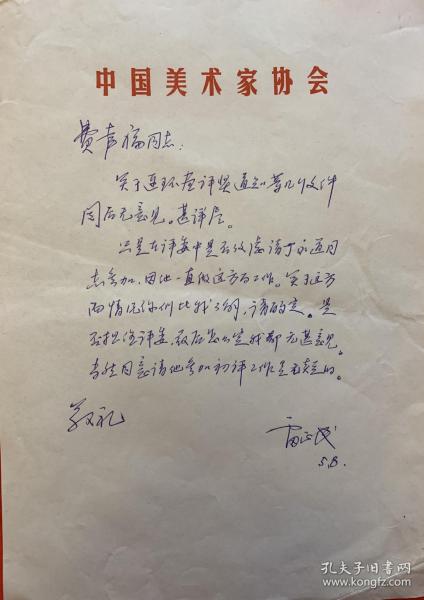 中国美术家协会
费声福同志：
关于连环画评奖通知等几个文件
阅后无意见。甚详尽。
只是在评委中是否考虑请 永 同
志参加，因他一直做这方面工作。关于这方
面情况你们比我了解，请酌定。是
否担任评委，最后怎么定我都无甚意见。
当然同意请他参加初评工作是无疑的。
敬礼
雷正民
5.8.
孔夫子旧书网
www.kongfz.com